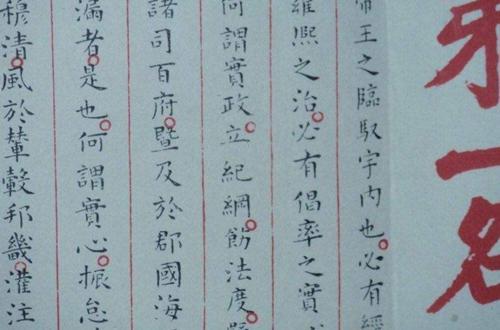 第一名
帝王之臨馭宇內也必有經
雍熙之治必有倡率之實
何謂實政立紀綱飭法度
諸司百府暨及於郡國海
漏者是也何謂實心振怠
穆清風於輦轂邦畿灌注